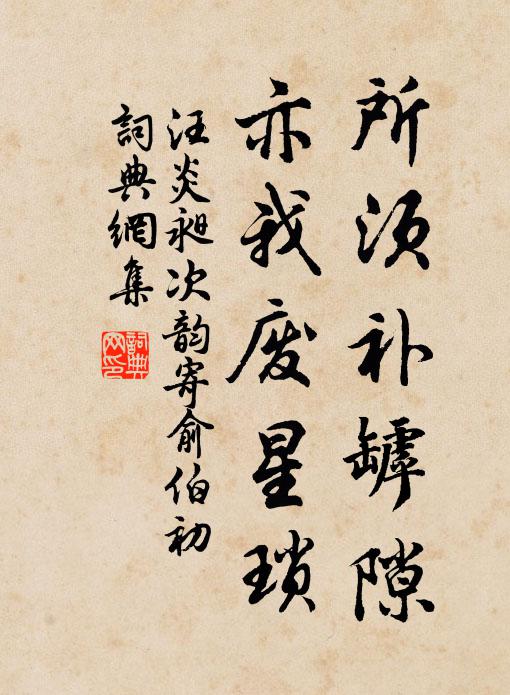 所须补罅隙
亦我废星琐
汪炎昶次韵寄俞伯初
詞典網集
詞典
网印